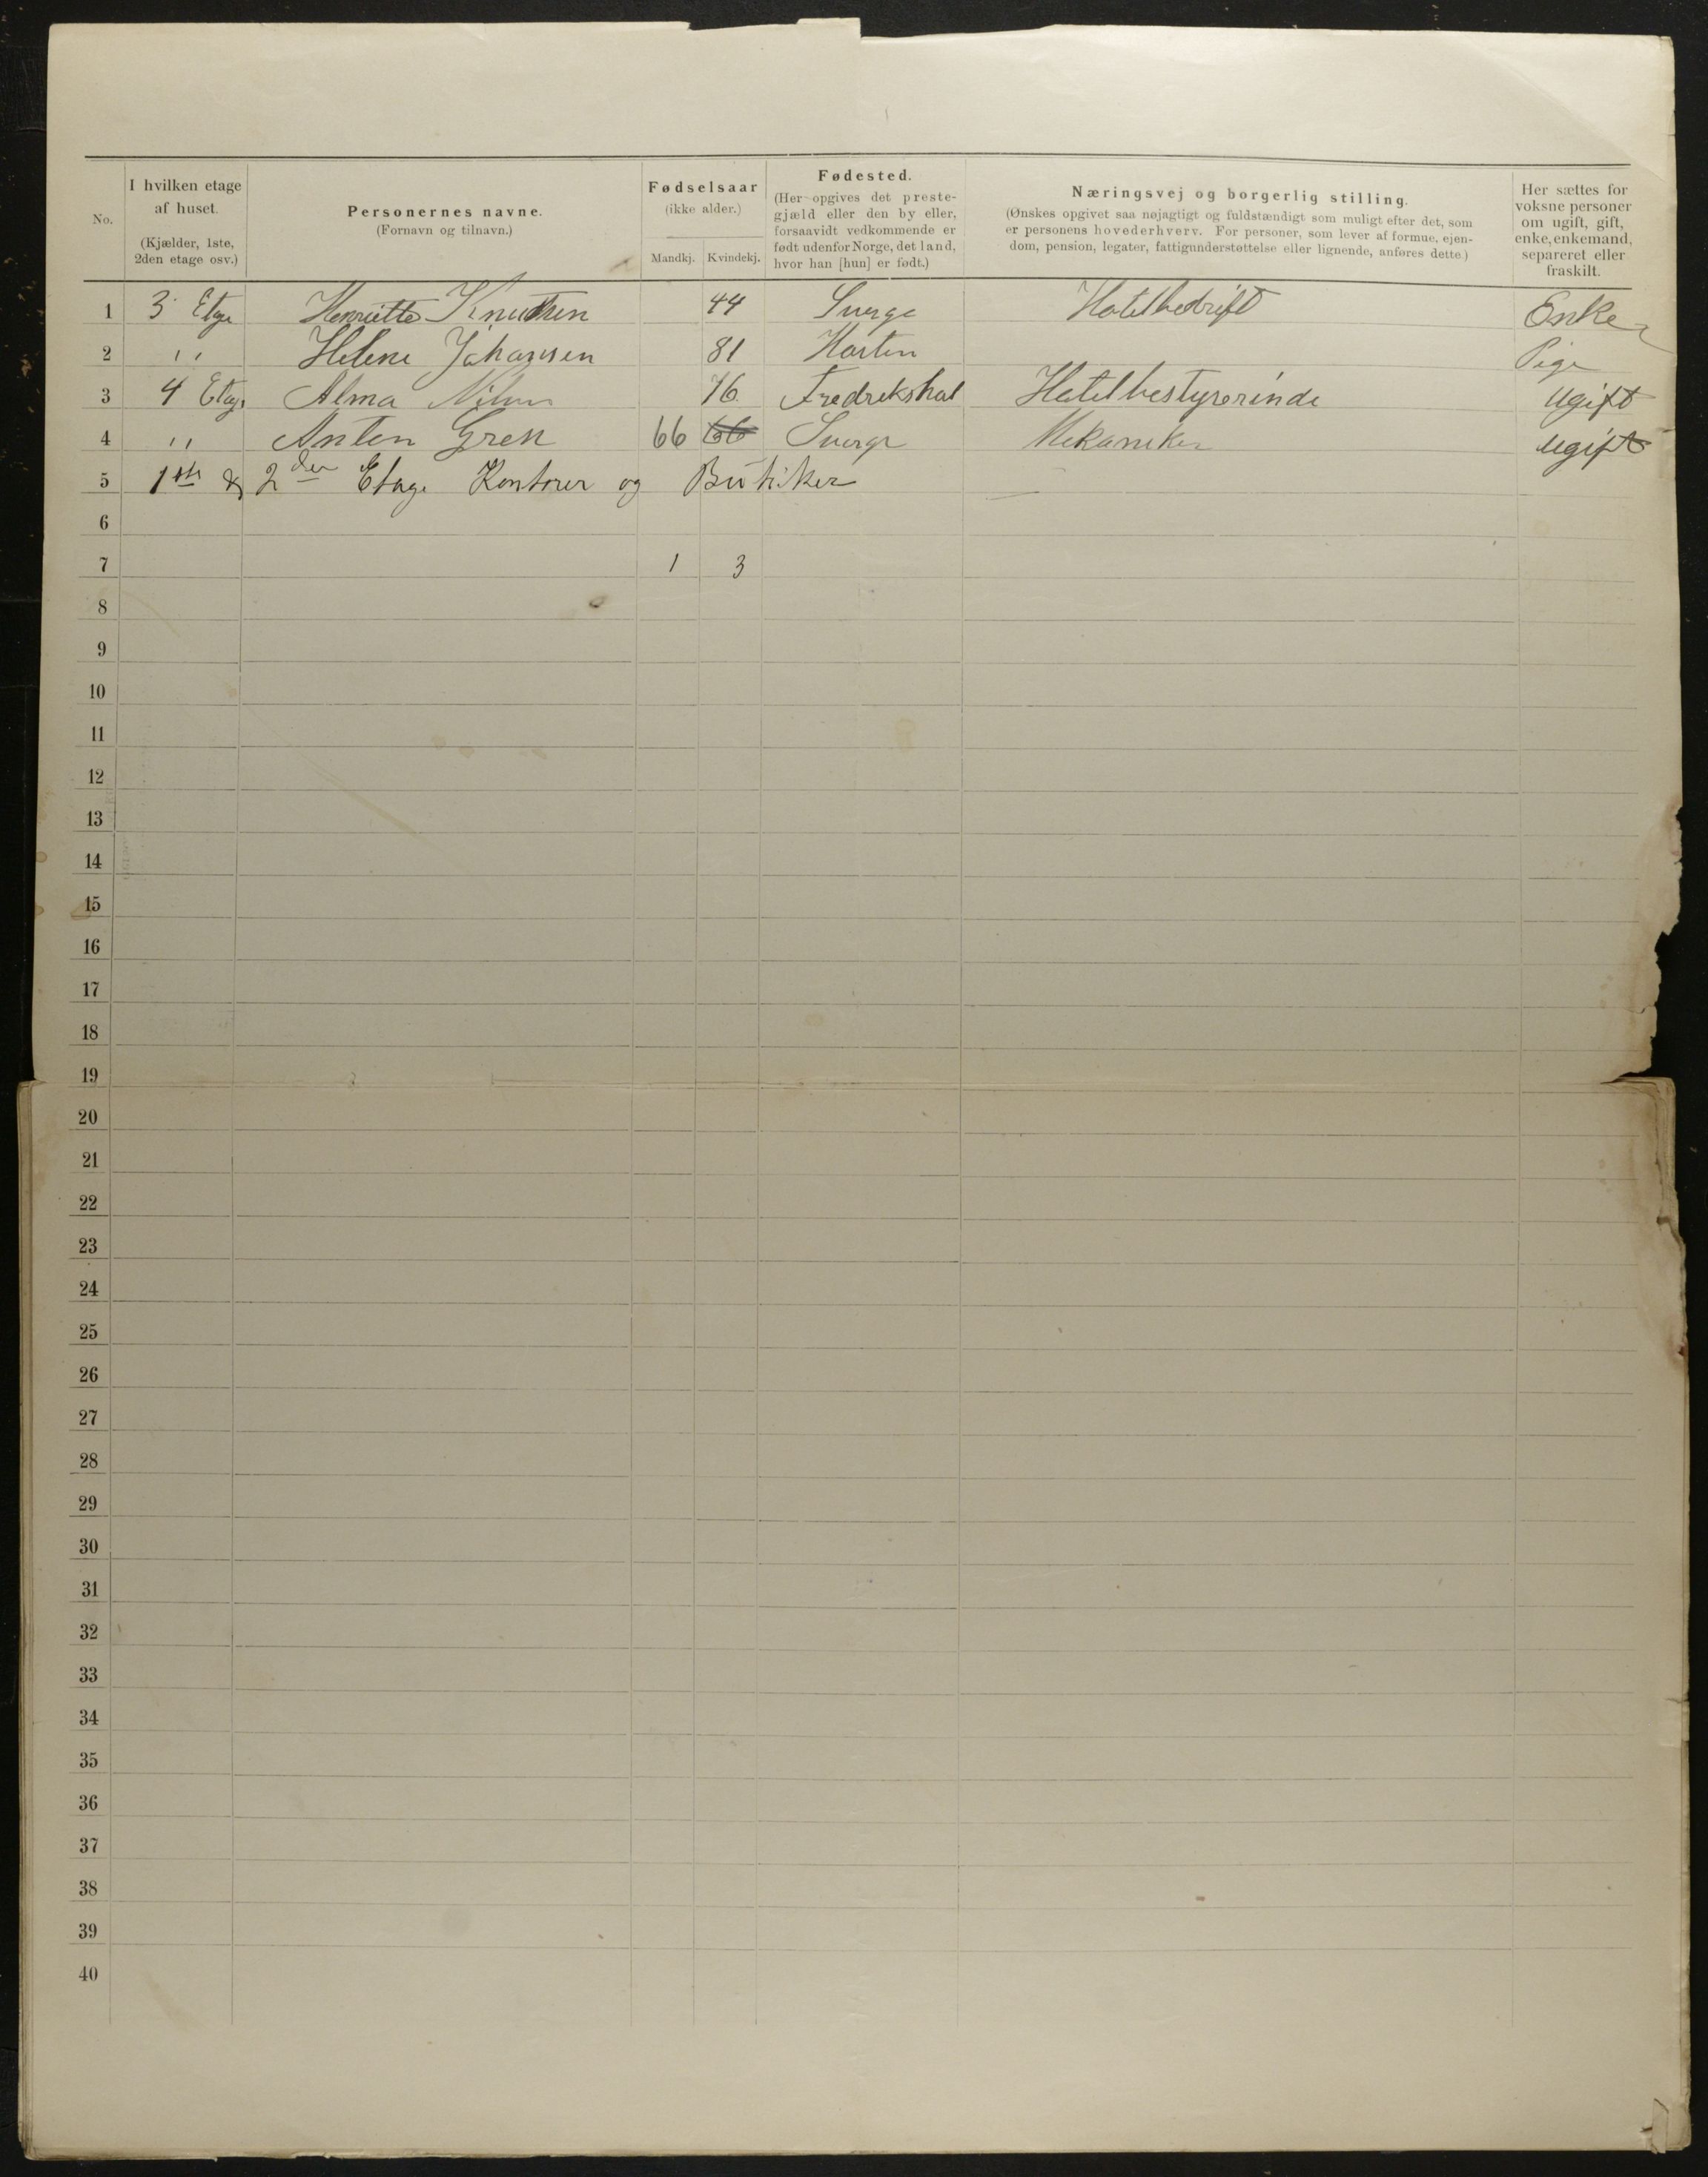 No.
I hvilken etage af huset. (Kjælder, 1ste, 2den etage osv.)
Personernes navne. (Fornavn og tilnavn.)
Fødselsaar (ikke alder.)
Mandkj. Kvindekj.
Fødested. (Her opgives det prestegjæld eller den by eller, forsaavidt vedkommende er født udenfor Norge, det land, hvor han [hun] er født.)
Næringsvej og borgerlig stilling.
(Ønskes opgivet saa nøjagtigt og fuldstændigt som muligt efter det, som er personens hovederhverv. For personer, som lever af formue, ejendom, pension, legater, fattigunderstøttelse eller lignende, anføres dette.)
Her sættes for voksne personer om ugift, gift, enke, enkemand, separeret eller fraskilt.
1 3 Etage Henriette Knudsen 44 Sverge Hotelbedrift Enke
2 ,, Helene Johansen 81 Horten Pige
3 4 Etage Alma 76 Fredrekshal Hotelbestyrerinde ugift
4 ,, Anton Gren 66 66 Sverge Mekaniker ugift
5 1ste & 2den Etage Kontorer og Butiker
6
7 1 3
8
9
10
11
12
13
14
15
16
17
18
19
20
21
22
23
24
25
26
27
28
29
30
31
32
33
34
35
36
37
38
39
40